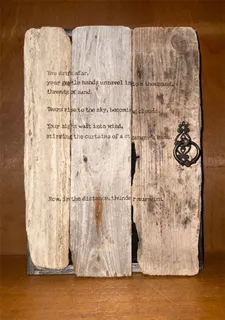 You drink afar,
your gentle hands unravel into a thousand,
threads of sand.
Tears rise to the sky, becoming clouds.
Your night wait into wind,
stirring the curtains of a stranger's
Now, in the distance, thunder